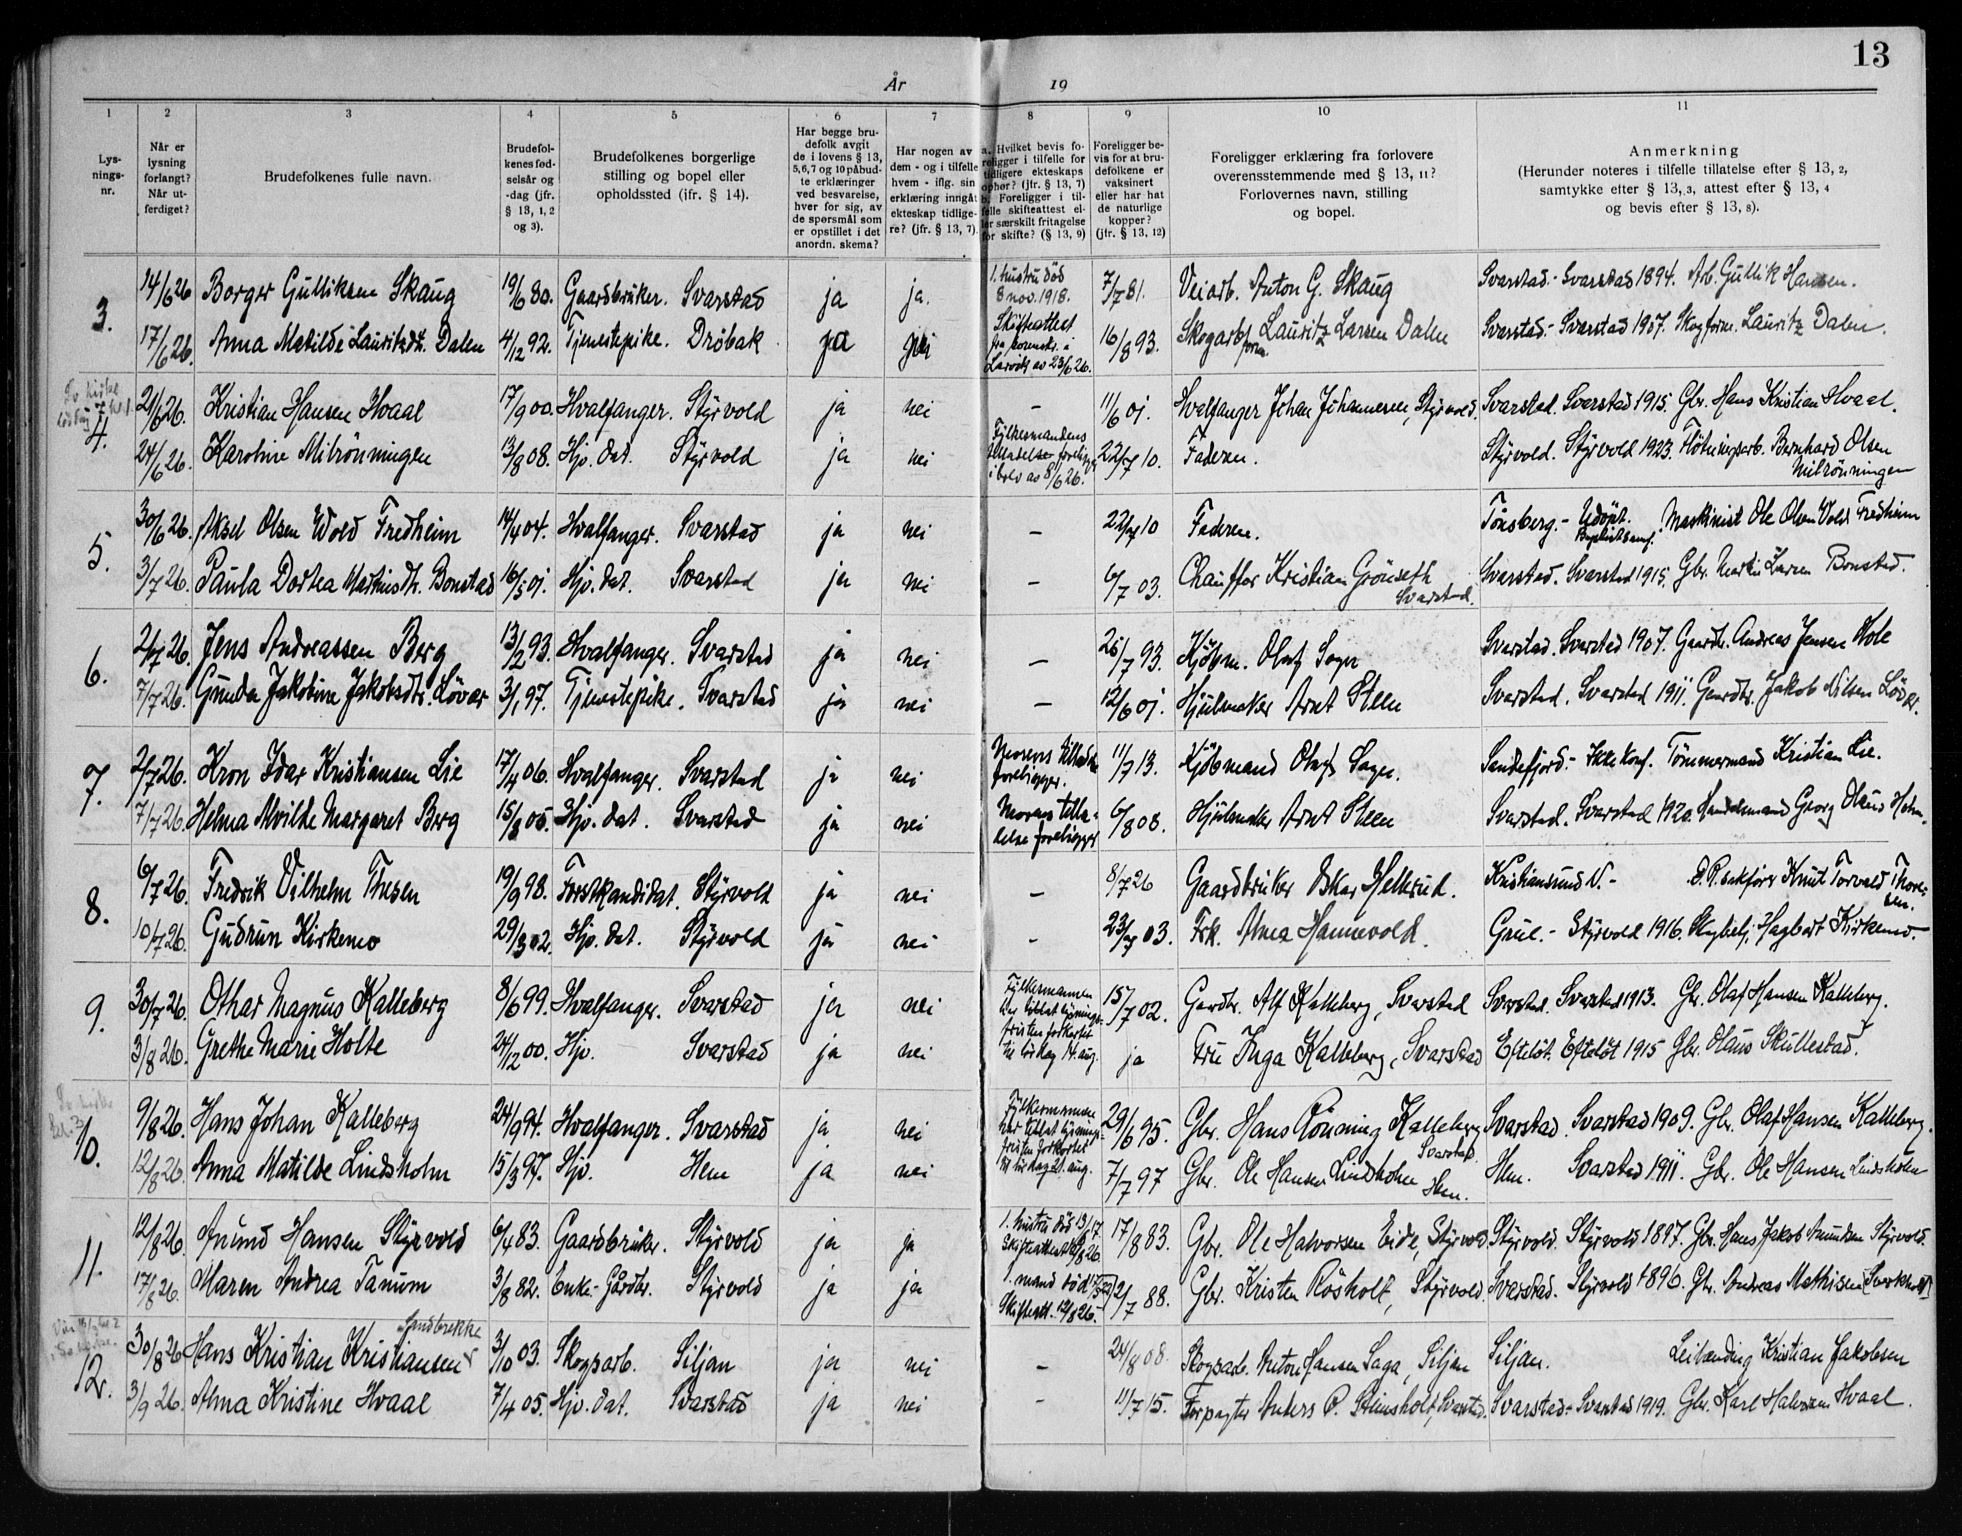 13
År 19
1 2 3 4 5 6 7 8 9 10 11
Lysningsnr.
Når er lysning forlangt? Når utferdiget?
Brudefolkenes fulle navn.
Brudefolkenes fødselsår og -dag (jfr. § 13, 1, 2 og 3).
Brudefolkenes borgerlige stilling og bopel eller opholdssted (ifr. § 14).
Har begge brudefolk avgit de i lovens § 13, 5,6,7 og 10 påbudte erklæringer ved besvarelse, hver for sig, av de spørsmål som er opstillet i det anordn. skema?
Har nogen av dem - og i tilfelle hvem - iflg. sin erklæring inngåt ekteskap tidligere? (jfr. § 13, 7).
a. Hvilket bevis foreligger i tilfelle for tidligere ekteskaps ophør? (jfr. § 13, 7) b. Foreligger i tilfelle skifteattest eller særskilt fritagelse for skifte? (§ 13, 9)
Foreligger bevis for at brudefolkene er vaksinert eller har hat de naturlige kopper? (jfr. § 13, 12)
Foreligger erklæring fra forlovere overensstemmende med § 13, 11? Forlovernes navn, stilling og bopel.
Anmerkning (Herunder noteres i tilfelle tillatelse efter § 13, 2, samtykke efter § 13, 3, attest efter § 13, 4 og bevis efter § 13, 8).
3. 14/6 26 Borger Gulliksen Skaug 19/6 80. Gaardbruker. Svarstad ja ja. 1. hustru död 8 nov. 1918. 7/7 81. Veiarb. Anton G. Skaug Svarstad - Svarstad 1894. Arb. Gullik Hansen.
17/6 26. Anna Matilde Lauritzdt. Dalen 4/12 92. Tjenestepike. Dröbak ja nei Skifteattest fra sorenskr. i Larvik av 23/6 26. 16/8 93. Skogarb. form. Lauritz Larsen Dalen Svarstad - Svarstad 1907. Skogform. Lauritz Dalen.
4. 21/6 26. Kristian Hansen Hvaal 17/9 00. Hvalfanger. Styrvold ja nei - 11/6 01. Hvalfanger Johan Johannesen, Styrvold. Svarstad. Svarstad 1915. Gbr. Hans Kristian Hvaal.
24/6 26. Karoline Milrönningen 13/8 08. Hjv. dat. Styrvold ja nei Fylkesmandens tilladelse foreligger i brev av 8/6 26. 22/7 10. Faderen. Styrvold. Styrvold 1923. Flötningsarb. Bernhard Olsen Milrönningen
5. 30/6 26. Aksel Olsen Wold Fredheim 14/4 04. Hvalfanger. Svarstad ja nei - 22/7 10 Faderen. Tönsberg. - Udöpt. Baptistsamf. Maskinist Ole Olsen Wold Fredheim
3/7 26. Paula Dortea Mathisdt. Bonstad 16/5 01. Hjv. dat. Svarstad ja nei - 6/7 03. Chauffør Kristian Grönseth Svarstad. Svarstad. Svarstad 1915. Gbr. Martin Larsen Bonstad.
6. 2/7 26. Jens Andreassen Berg 13/2 93. Hvalfanger. Svarstad ja nei - 26/7 93. Kjöbm. Oluf Sager Svarstad. Svarstad 1907. Gaardbr. Andreas Jensen Hole
7/7 26. Gunda Jakobine Jakobsdtr. Lövar 3/1 97. Tjenestepike. Svarstad ja nei - 12/6 01. Hjulmaker Arnt Steen Svarstad. Svarstad 1911. Gaardbr. Jakob Nilsen Lövar.
7. 2/7 26. Kron Idar Kristiansen Lie 17/4 06. Hvalfanger. Svarstad ja nei Morens foreligger. 11/7 13. Kjöbmand Oluf Sager. Sandefjord. - Ikke konf. Tömmermand Kristian Lie.
7/7 26. Helma Alvilde Margaret Berg 15/8 05. Hjv. dat. Svarstad ja nei Morens tilladelse foreligger 6/8 08. Hjulmaker Arnt Steen Svarstad. Svarstad 1920. Handelsmand Georg Olaus Holm.
8. 6/7 26. Fredrik Vilhelm Thesen 19/9 98. Forstkandidat. Styrvold ja nei - 8/7 26 Gaardbruker Oskar Hellerud. Kristiansund N. - O.R.sakförer Knut Torvald Thoresen.
10/7 26. Gudrun Kirkemo 29/3 02. Hjv. dat. Styrvold ja nei - 23/7 03. Frk. Alma Hannevold. Grue. - Styrvold 1916. Skogbetj. Hagbart Kirkemo.
9. 30/7 26. Othar Magnus Kalleberg 8/6 99. Hvalfanger. Svarstad ja nei Fylkesmannen har tillat lysningsfristen forkortet til lördag 14. aug. 15/7 02. Gardbr. Alf Kalleberg, Svarstad Svarstad. Svarstad 1913. Gbr. Olaf Hansen Kalleberg.
3/8 26. Grethe Marie Holte 24/12 00. Hjv. Svarstad ja nei ja Fru Inga Kalleberg, Svarstad Efteløt. Efteløt 1915 Gbr. Olaus Skullestad.
10. 9/8 26. Hans Johan Kalleberg 24/9 94. Hvalfanger. Svarstad ja nei Fylkesmannen har tillat lysningsfristen forkortet til lördag 21. aug. 29/6 95. Gbr. Hans Rönning Kalleberg Svarstad. Svarstad. Svarstad 1909. Gbr. Olaf Hansen Kalleberg.
12/8 26. Anna Matilde Lindsholm 15/3 97. Hjv. Hem ja nei 7/7 97 Gbr. Ole Hansen Lindsholm Hem. Hem. Svarstad 1911. Gbr. Ole Hansen Lindsholm
11. 12/8 26. Anund Hansen Styrvold 6/4 83. Gaardbruker. Styrvold ja ja 1. hustru död 17/8 83. Gbr. Ole Halvorsen Eide, Styrvold Styrvold. Styrvold 1897. Gbr. Hans Jakob Anundsen Styrvold.
17/8 26. Maren Andrea Tanum 3/8 82. Enke - Gårdbr. Styrvold ja ja 1. mand död Skifteatt. 12/8 26. 2/7 88. Gbr. Kristen Rösholt, Styrvold. Svarstad. Styrvold 1896. Gbr. Andreas Mathisen
12. 30/8 26 Hans Kristian Kristiansen Sandbrekke 3/10 03. Skogsarb. Siljan ja nei - 24/8 08. Skogsarb. Anton Hansen Saga, Siljan Siljan. Leilending Kristian Jakobsen
3/9 26. Alma Kristine Hvaal 7/4 05. Hjv. dat. Svarstad ja nei - 11/7 15. Forpagter Anders P. Stensholt, Svarstad. Svarstad - Svarstad 1919. Gbr. Karl Halvorsen Hvaal.